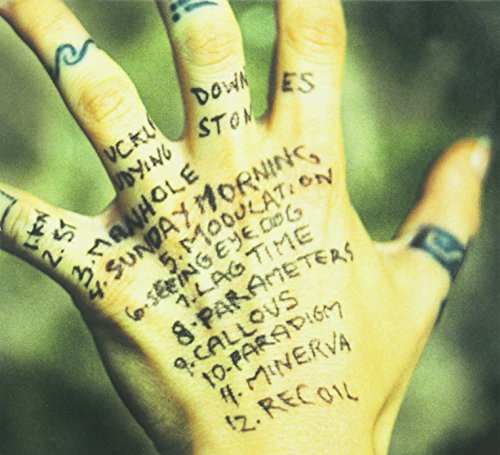 1. KN UCKL DOWN
2. ST UDYING STON ES
3. MANHOLE
4. SUNDAY MORNING
5. MODULATION
6. SEEING EYE DOG
7. LAG TIME
8. PARAMETERS
9. CALLOUS
10. PARADIGM
11. MINERVA
12. RECOIL